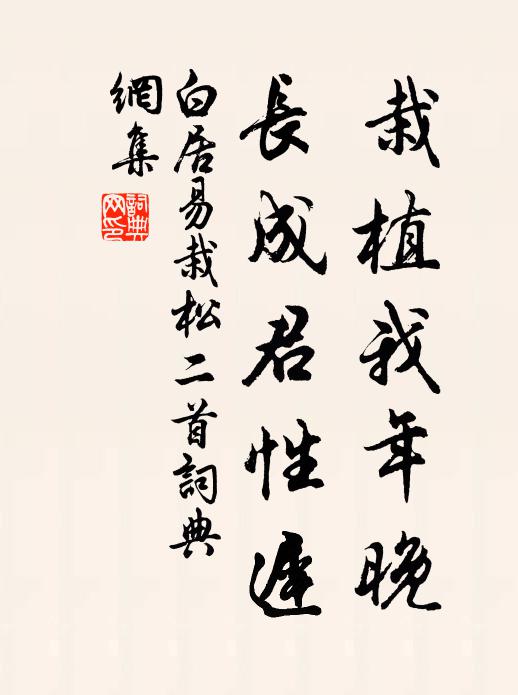 栽植我年晚
長成君性遲
白居易栽松二首詞典
網集
詞典
网印